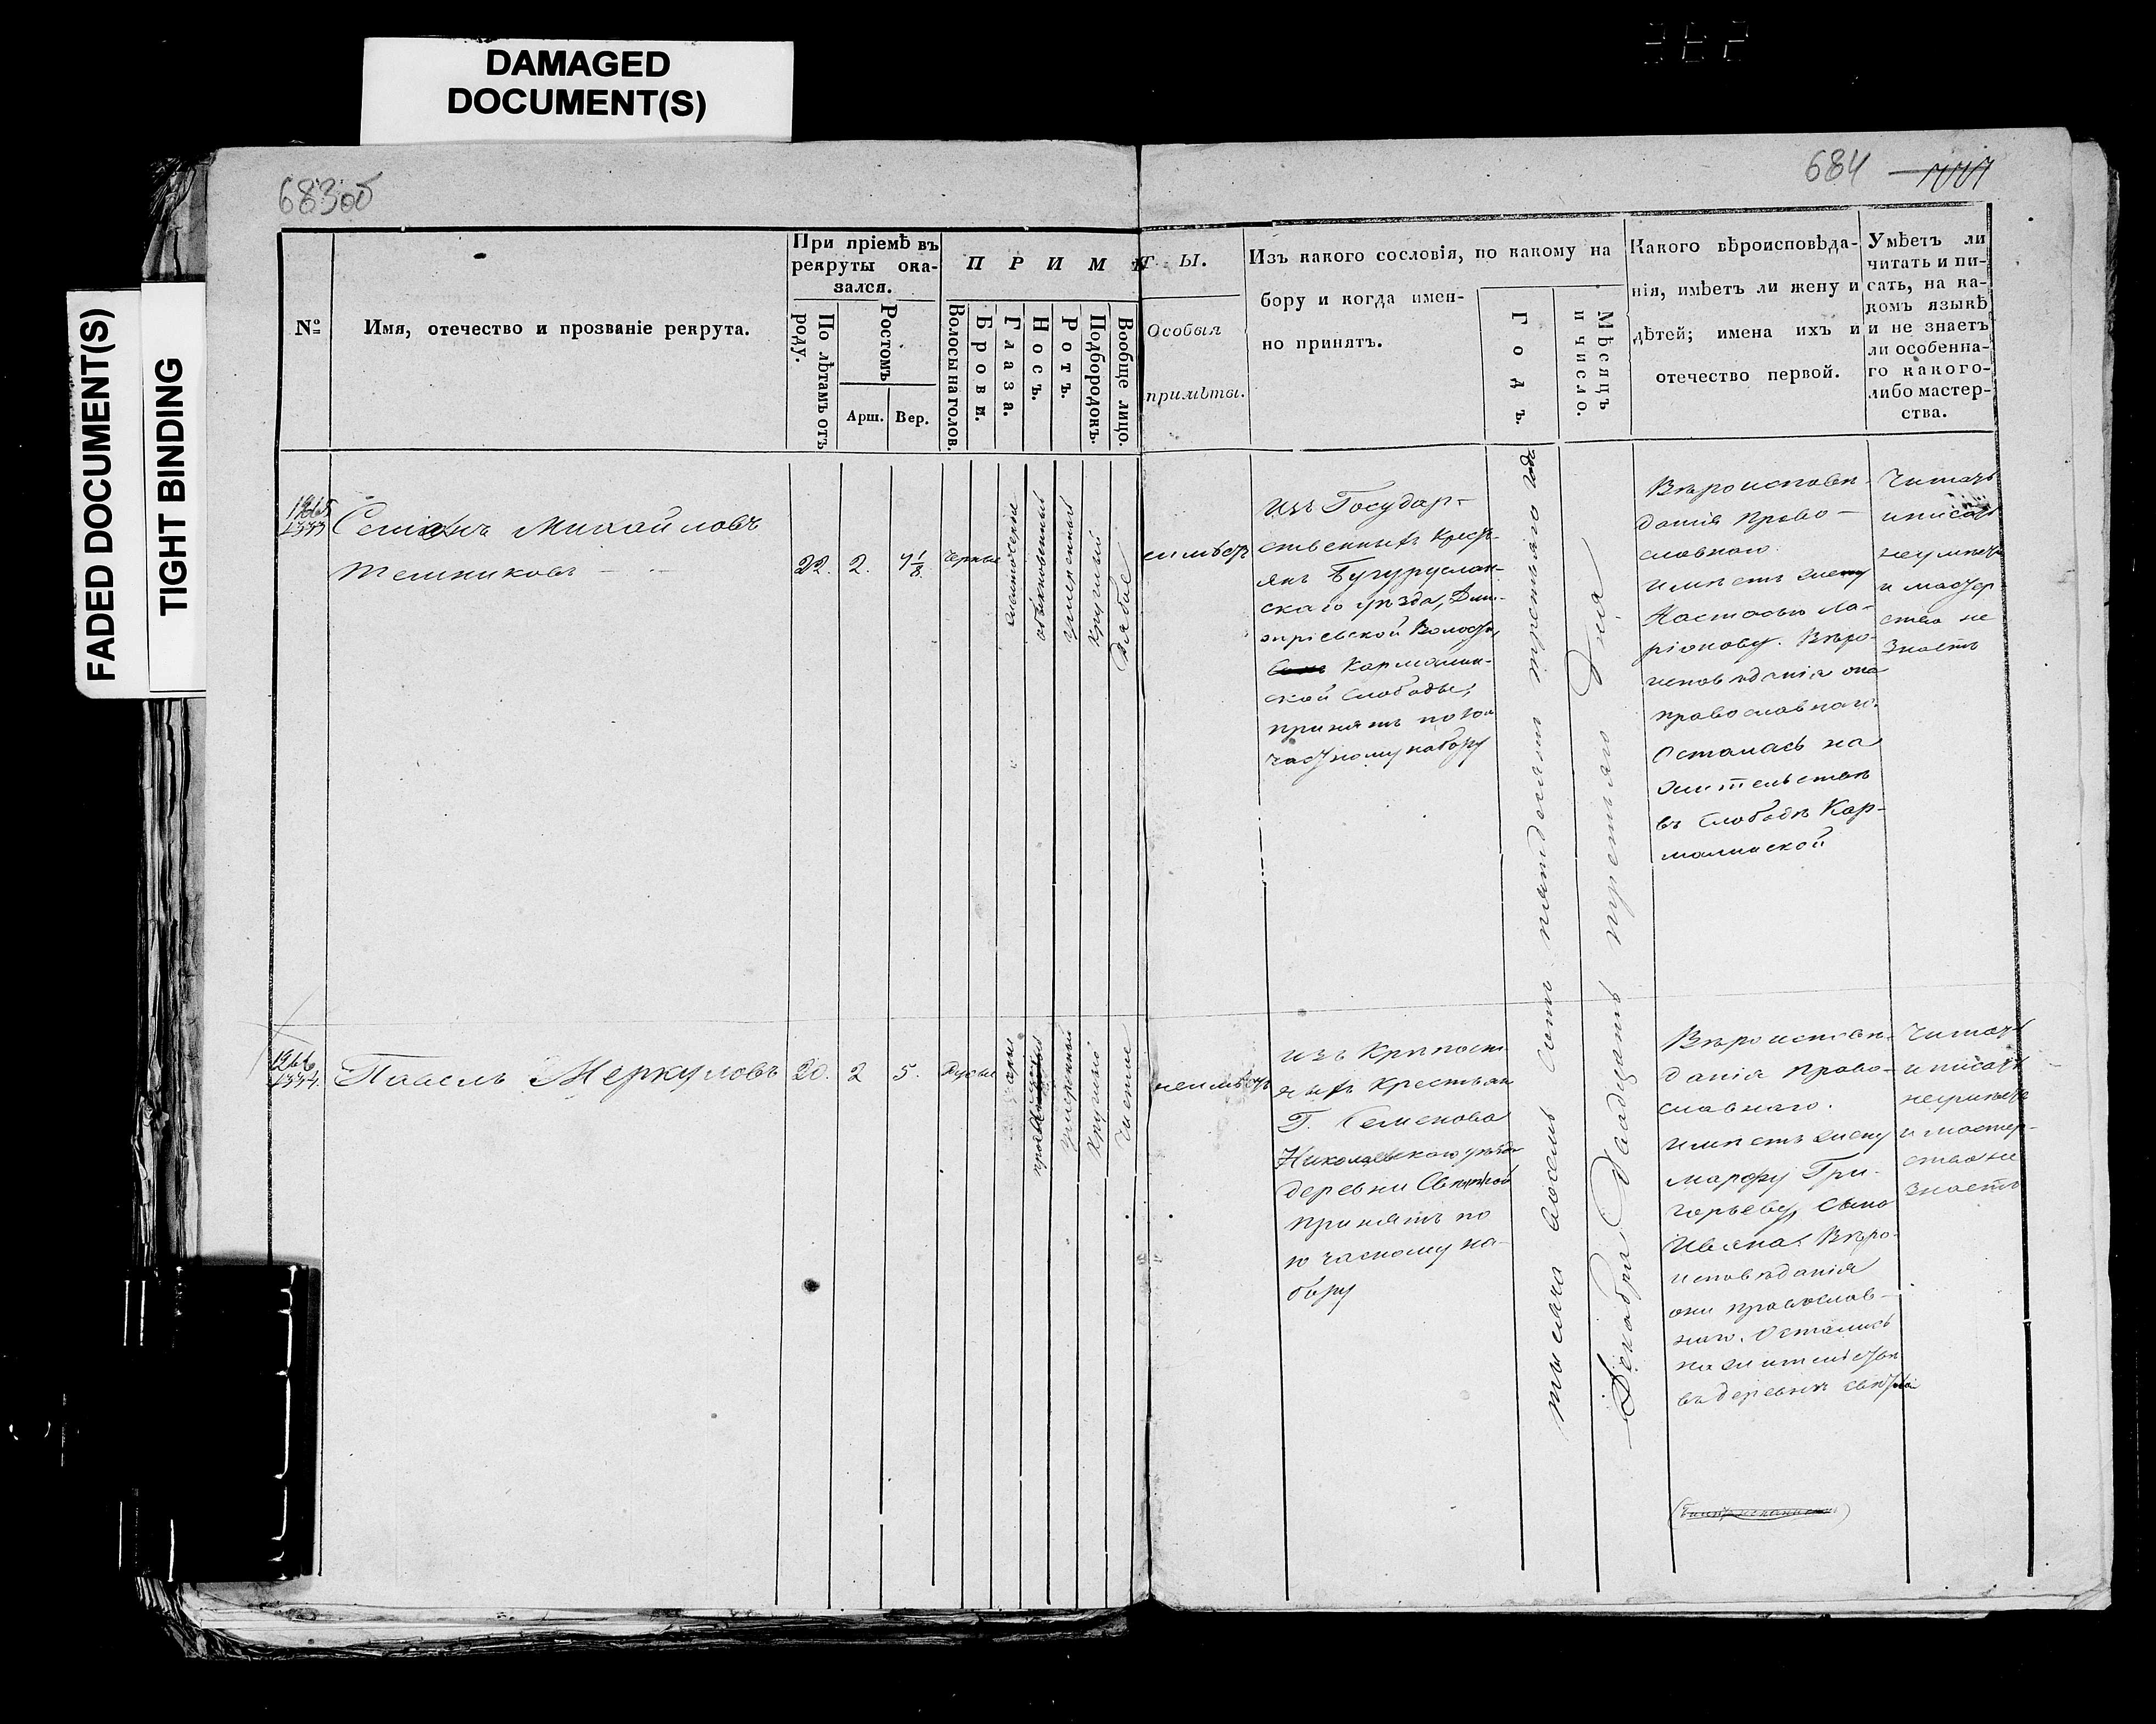 DAMAGED
DOCUMENT(S)
FADED DOCUMENT(S)
TIGHT BINDING
683об
684
№
Имя, отечество и прозваніе рекрута.
При пріемѣ въ
рекруты ока-
зался.
По лѣтамъ отъ
роду.
Ростомъ
Арш.
Вер.
ПРИМѢТЫ.
Волосы на голов.
Брови.
Глаза.
Носъ.
Ротъ.
Подбородокъ.
Вообще лицо.
Особыя
примѣты.
Изъ какого сословія, по какому на
бору и когда имен-
но принятъ.
Годъ.
Мѣсяцъ
и число.
Какого вѣроисповѣда-
нія, имѣетъ ли жену и
дѣтей; имена ихъ и
отечество первой.
Умѣетъ ли
читать и пи-
сать, на ка-
комъ языкѣ
и не знаетъ
ли особенна-
го какого-
либо мастер-
ства.
1265
1333
Михайловъ
22.
2.
4 1/8
Черные
обыкновенный
умеренный
круглый
рябое
изъ Государ-
ственныхъ крест-
янъ Бугуруслан-
скаго уѣзда, Дми-
тріевской Волости,
Кармалин-
ской Слободы,
принятъ по 10и
частному набору
Вѣроисповѣ-
данія Право-
славнаго.
имѣетъ жену
Настасью Ла-
ріонову. Вѣро-
исповѣданія она
православнаго.
Осталась на
жительствѣ
въ Слободѣ Кар-
малинской
Читать
и писать
неумѣетъ
и мастер
ства не
знаетъ
тысяча восемь сотъ пятдесятъ третьяго года
Декабря двадцать третьяго дня
1266
1334.
Павелъ Меркуловъ
20.
2
5.
Русые
умеренный
круглый
чистое
неимѣетъ
изъ Крѣпост-
ныхъ Крестьян
Г. Семенова
Николаевскаго уѣзда
деревни
принятъ по
10 частному на-
бору
Вѣроисповѣ-
данія Право-
славнаго.
имѣетъ жену
Марфу Гри-
горьеву, сына
Ивана. Вѣро-
исповѣданія
они православ-
наго. Остались
на жительствѣ
въ деревнѣ
Читать
и писать
неумѣетъ
и мастер-
ства не
знаетъ